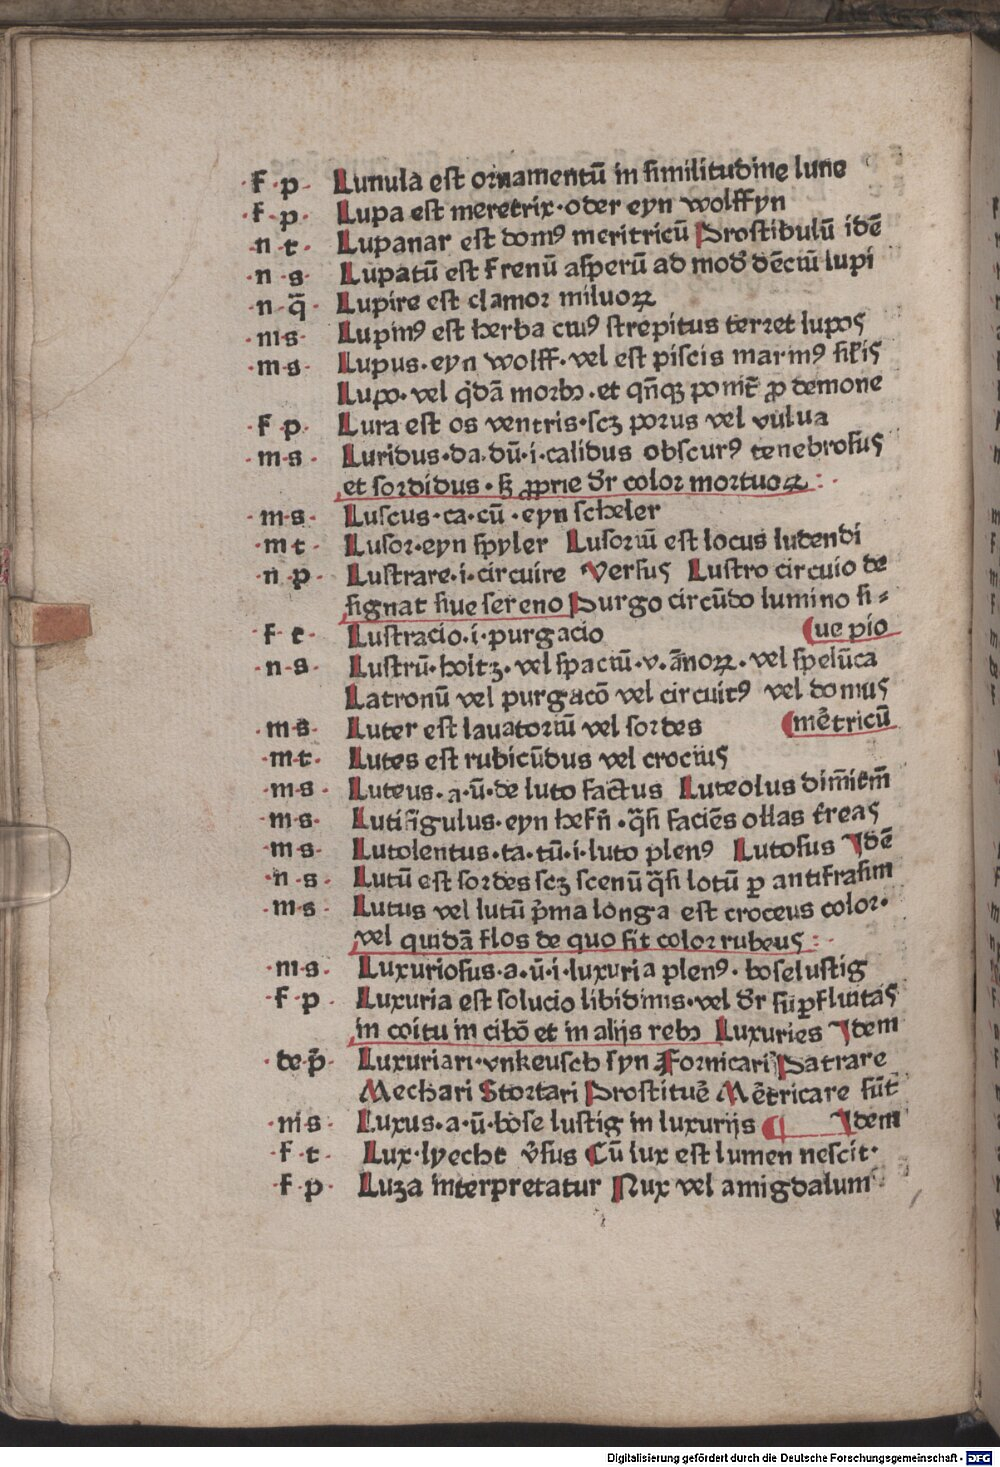 ·f·p· Lunula est ornamentū in similitudine lune
·f·p· Lupa est meretrix·oder eyn wolffyn
·n·t· Lupanar est domꝰ meritricū Prostibulū idē
·n·s· Lupatū est frenū asperū ad mod̄ dēciū lupi
·n·q̄· Lupire est clamor miluoꝝ
·m·s· Lupinꝰ est herba cuiꝰ strepitus terret lupos
·m·s· Lupus·eyn wolff·vel est piscis marinꝰ sil̛is
Lupo·vel q̇dā morbꝰ·et qn̄qꝫ ponit̄ ꝓ demone
·f·p· Lura est os ventris·scꝫ porus vel vulua
·m·s· Luridus·da·dū·i·calidus obscurꝰ tenebrosus
et sordidus·sꝫ ꝓprie dr̄ color mortuoꝝ:·
·m·s· Luscus·ca·cū·eyn scheler
·m t· Lusor·eyn spyler Lusoriū est locus ludendi
·n·p· Lustrare·i·circuire Versus Lustro circuio de
signat siue sereno Purgo circūdo lumino si⸗
·f·t· Lustracio·i·purgacio (ue pio
·n·s· Lustrū·holtz·vel spaciū·v·ānoꝝ·vel spelūca
Latronū vel purgacō vel circuitꝰ vel domus
·m·s· Luter est lauatoriū vel sordes (mētricū
·m·t· Lutes est rubicūdus vel crocius
·m·s· Luteus·a·ū·de luto factus Luteolus dim̄iem̄
·m·s· Lutifigulus·eyn hefn̄·q̄si faciēs ollas t̄reas
·m·s· Lutolentus·ta·tū·i·luto plenꝰ Lutosus Idē
·n·s· Lutū est sordes scꝫ scenū q̄si lotū ꝑ antifrasim
·m·s· Lutus vel lutū p̄ma longa est croceus color·
vel quidā flos de quo fit color rubeus:·
·m·s· Luxuriosus·a·ū·i·luxuria plenꝰ·boselustig
·f·p· Luxuria est solucio libidinis·vel dr̄ suꝑfluitas
in coitu in cibō et in alijs rebꝰ Luxuries Idem
·de·p̄· Luxuriari·vnkeusch syn Fornicari Patrare
Mechari Stortari Prostituē Mētricare sūt
·m·s· Luxus·a·ū·bose lustig in luxurijs ¶ Idem
·f·t· Lux·lyecht v̄sus Cū lux est lumen nescit·
·f·p· Luza interpretatur Nux vel amigdalum
Digitalisierung gefördert durch die Deutsche Forschungsgemeinschaft - DFG